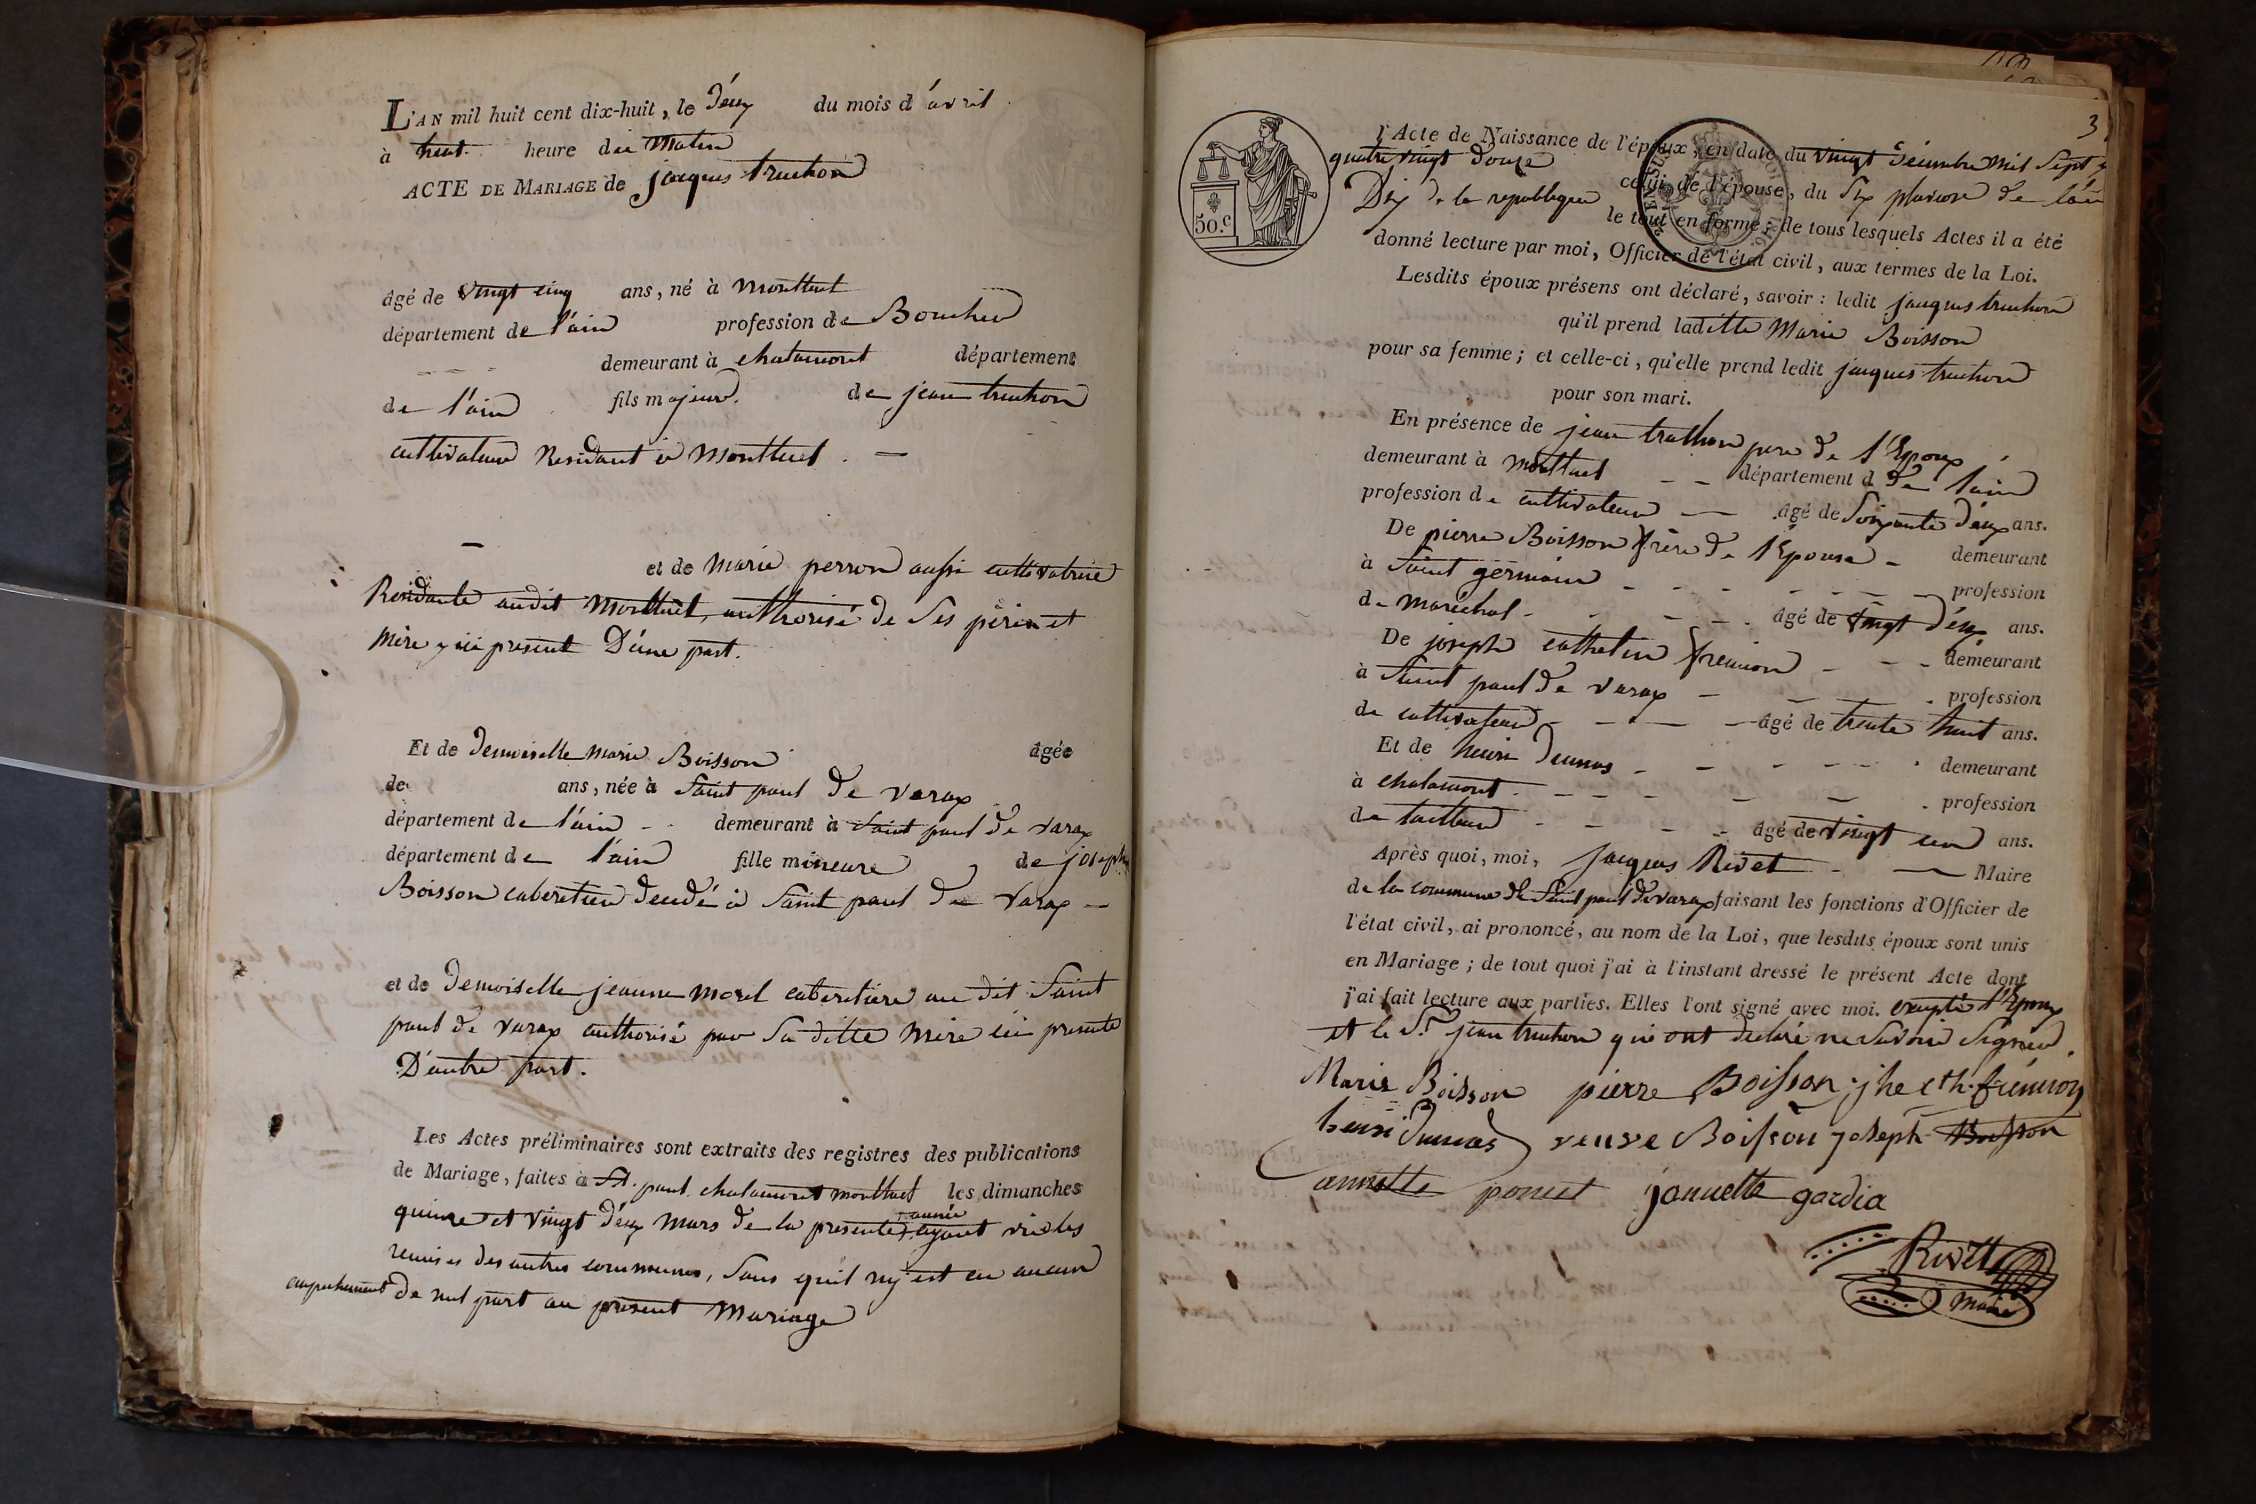 L'AN mil huit cent dix-huit, le déux du mois d'avril
à huit heure du matin
ACTE DE MARIAGE de jacques truchon
âgé de vingt cinq ans, né à montluel
département de l'ain profession de Boucher
demeurant à chalamont département
de l'ain fils majeur de jean truchon
cultivateur Residant à montluel. —
et de marie perron aussi cultivatrice
Residante audit montluel, authorisé de ses père et
mère y ici present D'une part.
Et de demoiselle marie Boisson âgée
de ans, née à saint paul de varax
département de l'ain demeurant à saint paul de varax
département de l'ain fille mineure de joseph
Boisson caberetier décédé à saint paul de varax —
et de demoiselle jeanne morel caberetiere au dit saint
paul de varax authorisé par sa ditte mère ici presente
D'autre part.
Les Actes préliminaires sont extraits des registres des publications
de Mariage, faites à St. paul chalamont montluel les dimanches
quinze et vingt déux mars de la presente année ayant vu les
remises des autres communes, sans quil n'y est eu aucun
empechement de nul part au présent mariage
3
l'Acte de Naissance de l'époux, en date du vingt décembre mil sept
quatre vingt douze celui de l'épouse, du six pluviose de l'an
Dix de la republique le tout en forme; de tous lesquels Actes il a été
donné lecture par moi, Officier de l'état civil, aux termes de la Loi.
50.c
Lesdits époux présens ont déclaré, savoir: ledit jacques truchon
qu'il prend laditte Marie Boisson
pour sa femme; et celle-ci, qu'elle prend ledit jacques truchon
pour son mari.
En présence de jean truchon pere de l'Epoux
demeurant à montluel — département d de l'ain
profession de cultivateur — âgé de soixante déux ans.
De pierre Boisson frère de l'Epouse - demeurant
à saint germain - profession
de marechal - âgé de vingt déux ans.
De joseph cathelin fremion - demeurant
à saint paul de varax - profession
de cultivateur - âgé de trente huit ans.
Et de henri dumas - demeurant
à chalamont - profession
de tailleur - âgé de vingt un ans.
Après quoi, moi, jacques Rivet — Maire
de la commune de saint paul de varax faisant les fonctions d'Officier de
l'état civil, ai prononcé, au nom de la Loi, que lesdits époux sont unis
en Mariage; de tout quoi j'ai à l'instant dressé le présent Acte dont
j'ai fait lecture aux parties. Elles l'ont signé avec moi. excepté l'Epoux
et le Sr. jean truchon qui ont declaré ne savoir signer.
Marie Boisson pierre Boisson jhe cth. frémion
henri dumas veuve Boisson joseph Boisson
annette poncet jannette gardia
Rivet
maire